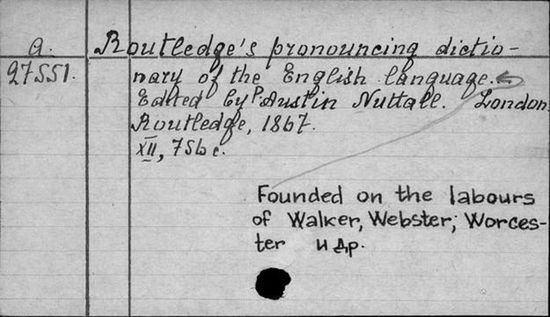 a. Routledge's pronouncing dictio-
27551. nary of the English language.
Edited by P. Austin Nuttall. London
Routledge, 1867.
XII, 756 c.
Founded on the labours
of Walker, Webster, Worces-
ter и др.